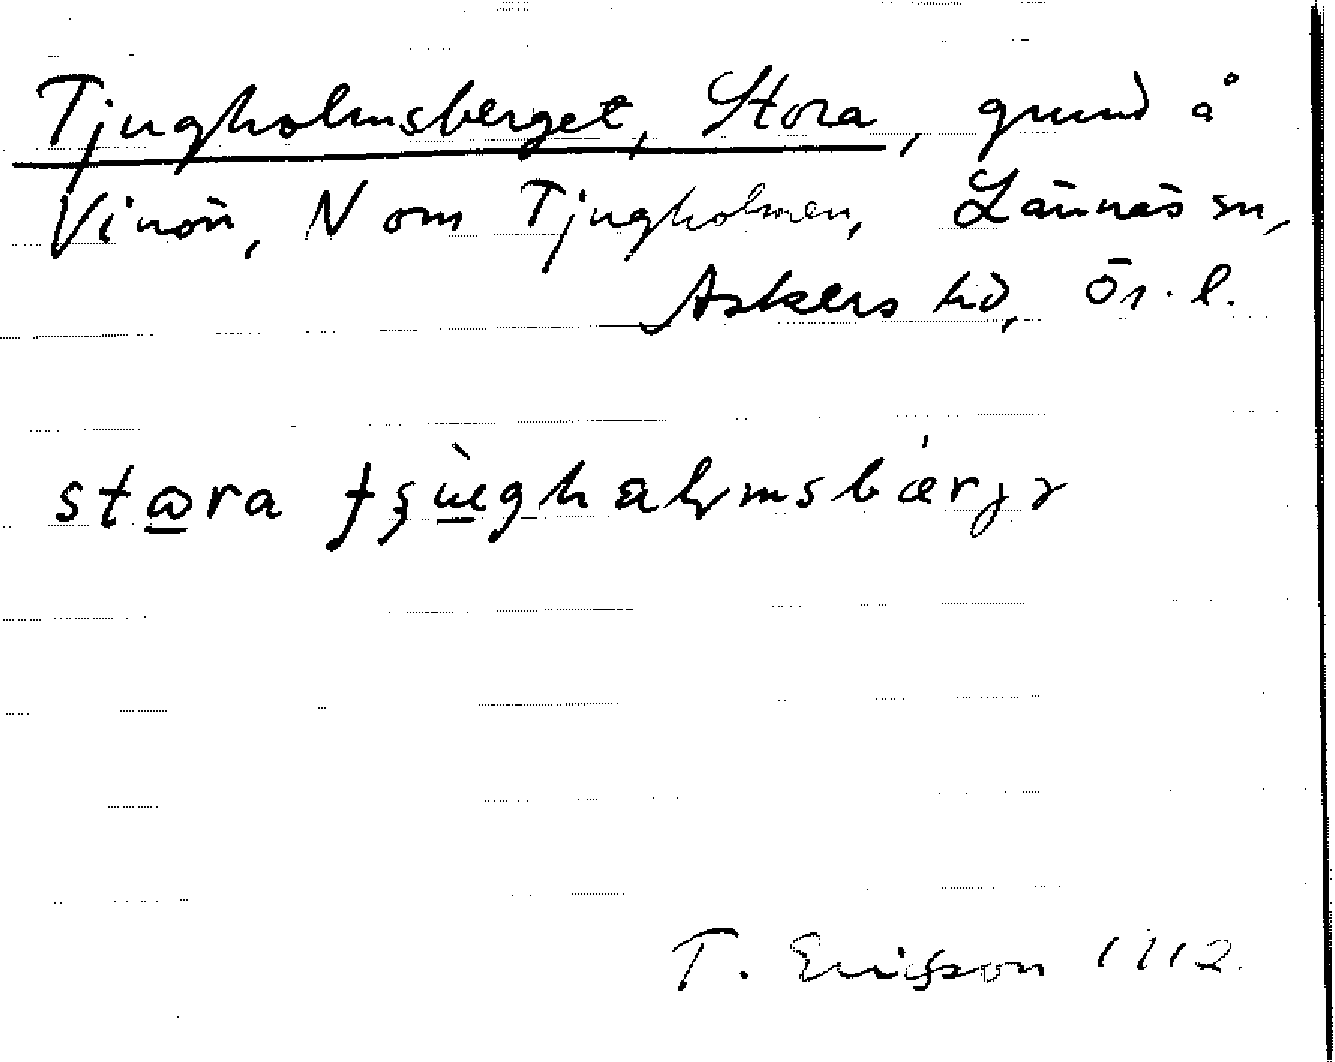 Tjugholmsberget, Stora, grund å
Vinön, N om Tjugholmen, Lännäs sn,
Askers hd, Ör. l.
stora
T. Ericsson